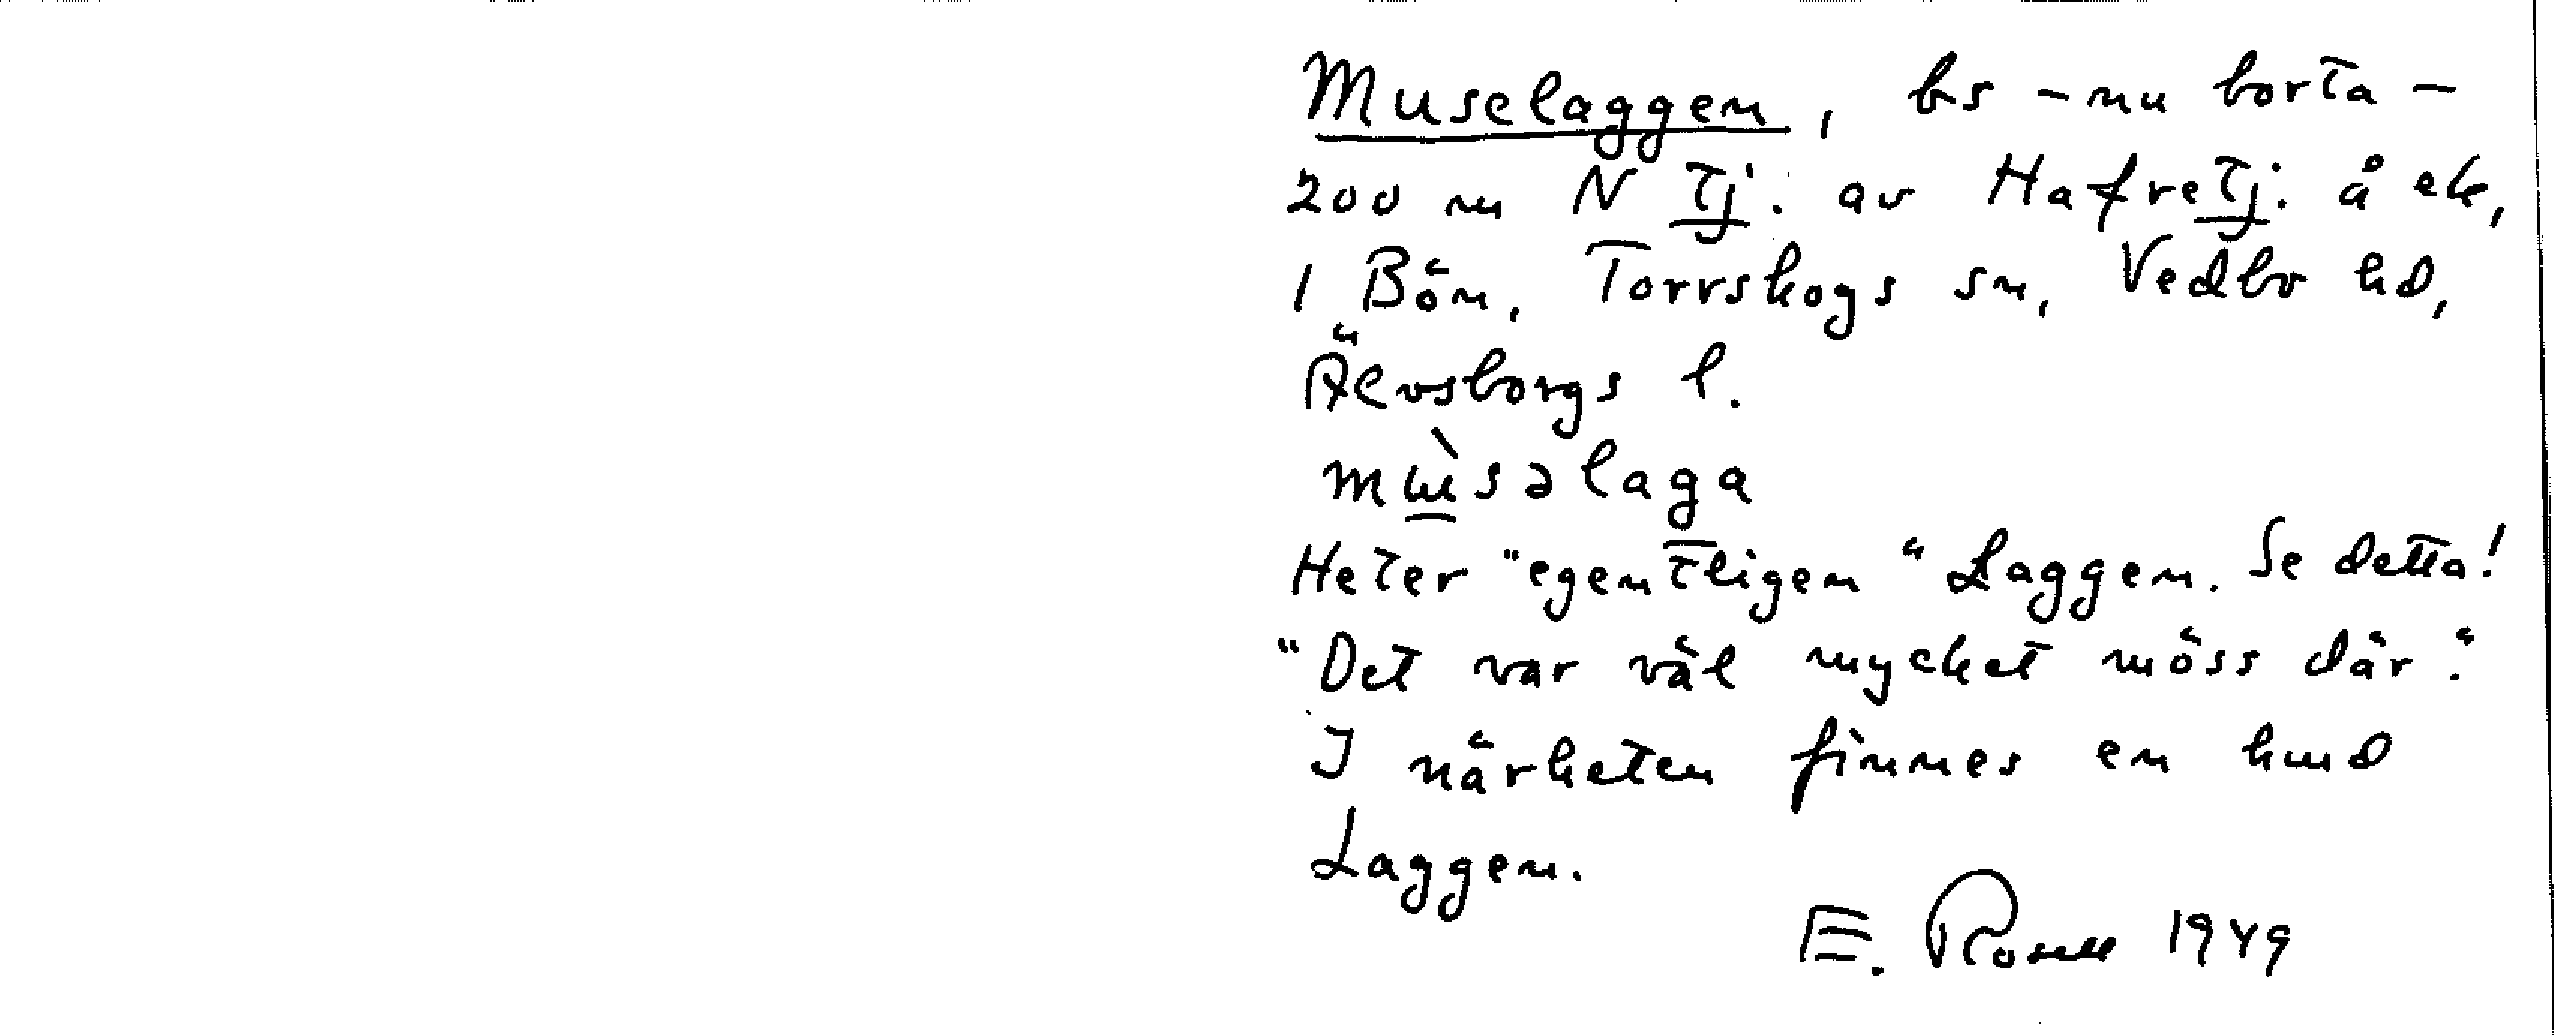 Muselaggen, bs - nu borta -
200 m N Tj. av HafreTj. å ek,
1 Bön, Torrskogs sn, Vedbo hd,
Älvsborgs l.
laga
Heter "egentligen" Laggen. Se detta!
"Det var väl mycket möss där."
I närheten finnes en hmd
Laggen.
E. Rosell 1949